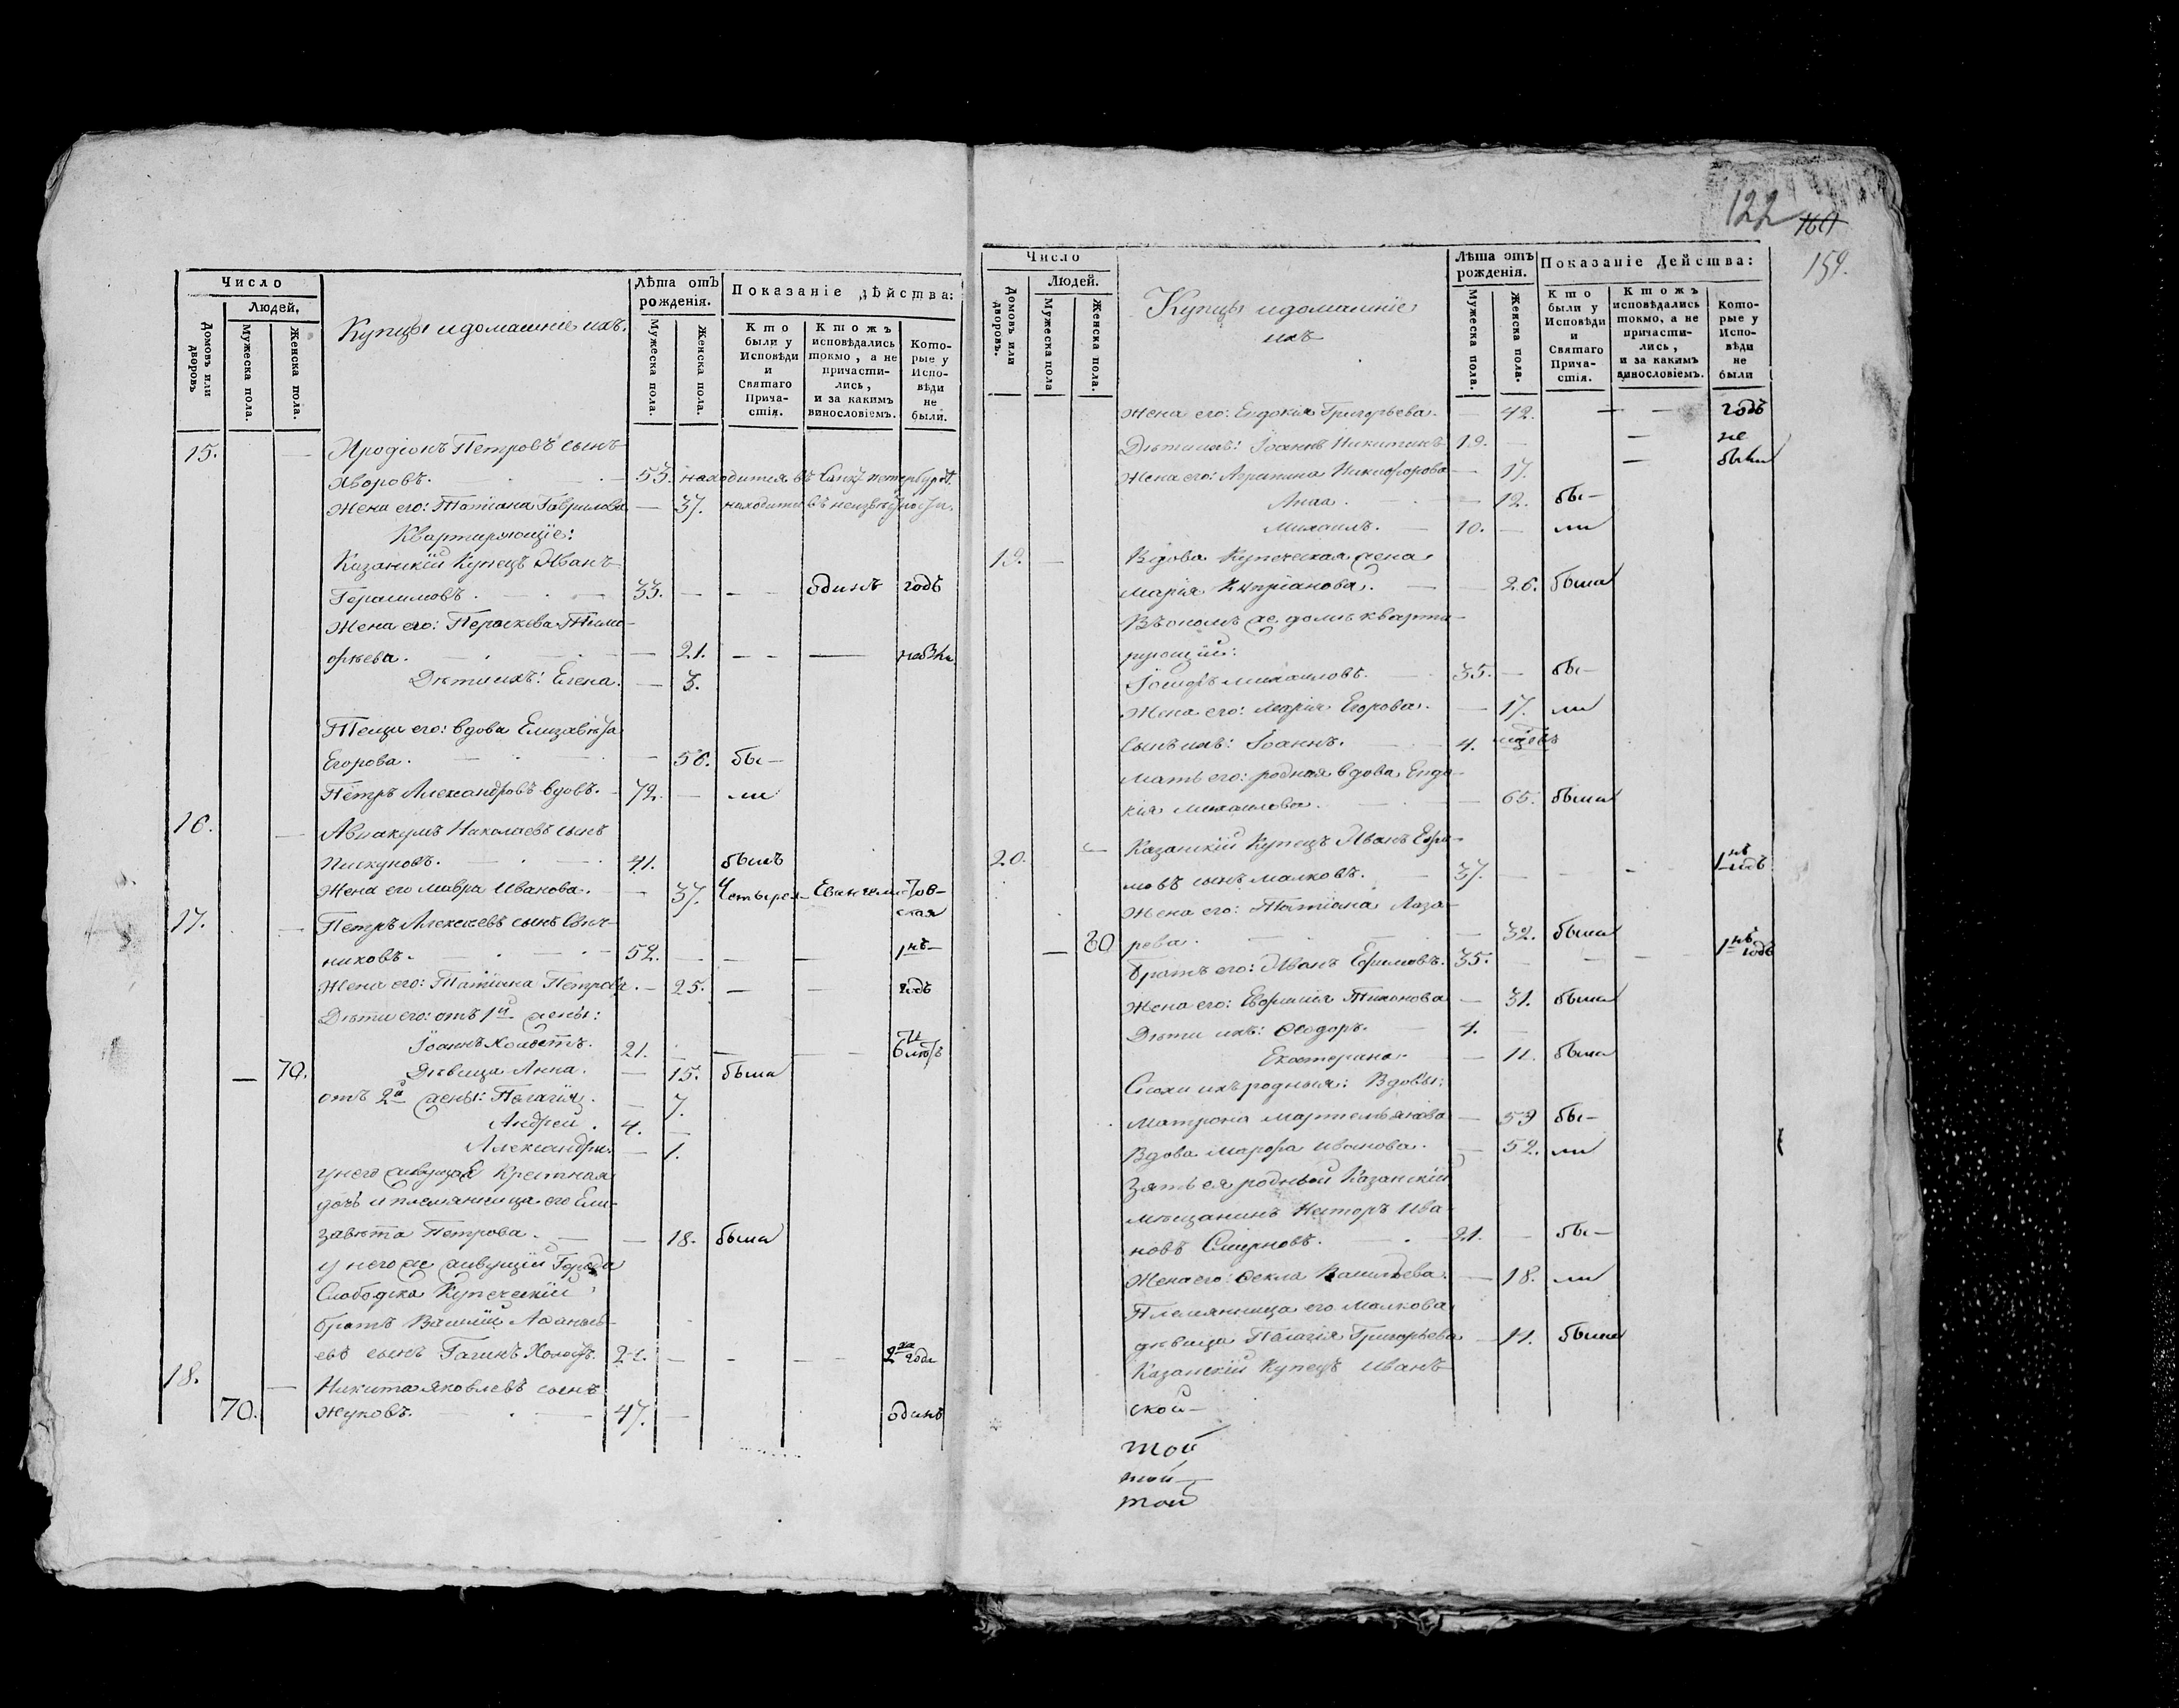 Число
Людей,
Домовъ или дворовъ
Мужеска пола.
Женска пола.
Купцы и домашніе ихъ.
Лѣта отъ рожденія.
Мужеска пола.
Женска пола.
Показаніе дѣйства:
Кто были у Исповѣди и Святаго Причастія.
Ктожъ исповѣдались токмо, а не причастились, и за какимъ винословіемъ.
Которые у Исповѣди не были.
15. — Иродіонъ Петровъ сынъ
Яворовъ. 53. находится въ Санктпетербургѣ.
Жена его: Татіана Гаврилова — 37. находится въ неизвѣстности.
Квартирующіе:
Казанскій Купецъ Иванъ
Герасимовъ. 33. — — одинъ годъ
Жена его: Пераскева Тимо-
фѣева. — 21. — — —
Дѣти ихъ: Елена. — 3.
Теща его: вдова Елизавѣта
Егорова. — 56. бы-
Петръ Александровъ вдовъ. 72. — ли
16. — Авнакумъ Николаевъ сынъ
Пискуновъ. 41. былъ
Жена его Мавра Иванова. — 37. Четырех-Евангелистов-
ская
17. — Петръ Алексѣевъ сынъ Свѣч-
никовъ. 52. — — — 1нъ-
Жена его: Татіана Петрова. — 25. — — годъ
Дѣти его: отъ 1й жены:
Іоаннъ Холостъ. 21. — — —
— 70. Дѣвица Анна. — 15. была
отъ 2й жены: Пелагія. — 7.
Андрей. 4. —
Александра. — 1.
у него живущая Крестная
дочь и племянница его Ели-
завѣта Петрова. — 18. была
у него же живущій Города
Слободска Купеческій
братъ Василій Аѳанась-
евъ сынъ Гагинъ Холостъ. — — — 2ва года
18. — Никита Яковлевъ сынъ
70. Жуковъ. 47. — одинъ
122
160
159.
Число
Людей.
Домовъ или дворовъ.
Мужеска пола
Женска пола.
Купцы и домашніе
ихъ
Лѣта отъ рожденія.
Мужеска пола.
Женска пола.
Показаніе Действа:
Кто были у Исповѣди и Святаго Причастія.
Ктожъ исповѣдались токмо, а не причастились, и за какимъ винословіемъ.
Которые у Исповѣди не были
Жена его: Евдокія Григорьева. — 42. — — годъ
Дѣти ихъ: Іоаннъ Никитинъ 19. — — не
Жена его: Агрипина Никифорова — 17. — были
Анна. — 12. бы-
Михаилъ. 10. — ли
19. — Вдова Купеческая жена
Марія Кипріанова. — 26. была
Въ ономъ же домѣ кварти-
рующіе:
Іосифъ Михаиловъ. 35. — бы-
Жена его: Марія Егорова. — 17. ли
Сынъ ихъ: Іоаннъ. 4.
Мать его: родная вдова Евдо-
кія Михаилова. — 65. была
20. — Казанскій Купецъ Иванъ Ефи-
мовъ сынъ Малковъ. 37. — — — 1нъ годъ
Жена его: Татіана Лаза-
— 80 рева. — 32. была
братъ его: Иванъ Ефимовъ. 35. — — — 1нъ годъ
Жена его: Евфимія Тихонова — 31. была
Дѣти ихъ: Ѳеодоръ. 4. —
Екатерина. — 11. была
Снохи ихъ родныя: Вдовы:
Матрона Мартемьянова — 59 бы-
Вдова Марфа Иванова. — 52. ли
Зять ея родный Казанскій
мѣщанинъ Несторъ Ива-
новъ Смирновъ. 21. — бы-
Жена его: Ѳекла Васильева. — 18. ли
Племянница его Малкова
дѣвица Пелагія Григорьева — 11. была
Казанскій Купецъ Иванъ
ской-
той
той
той